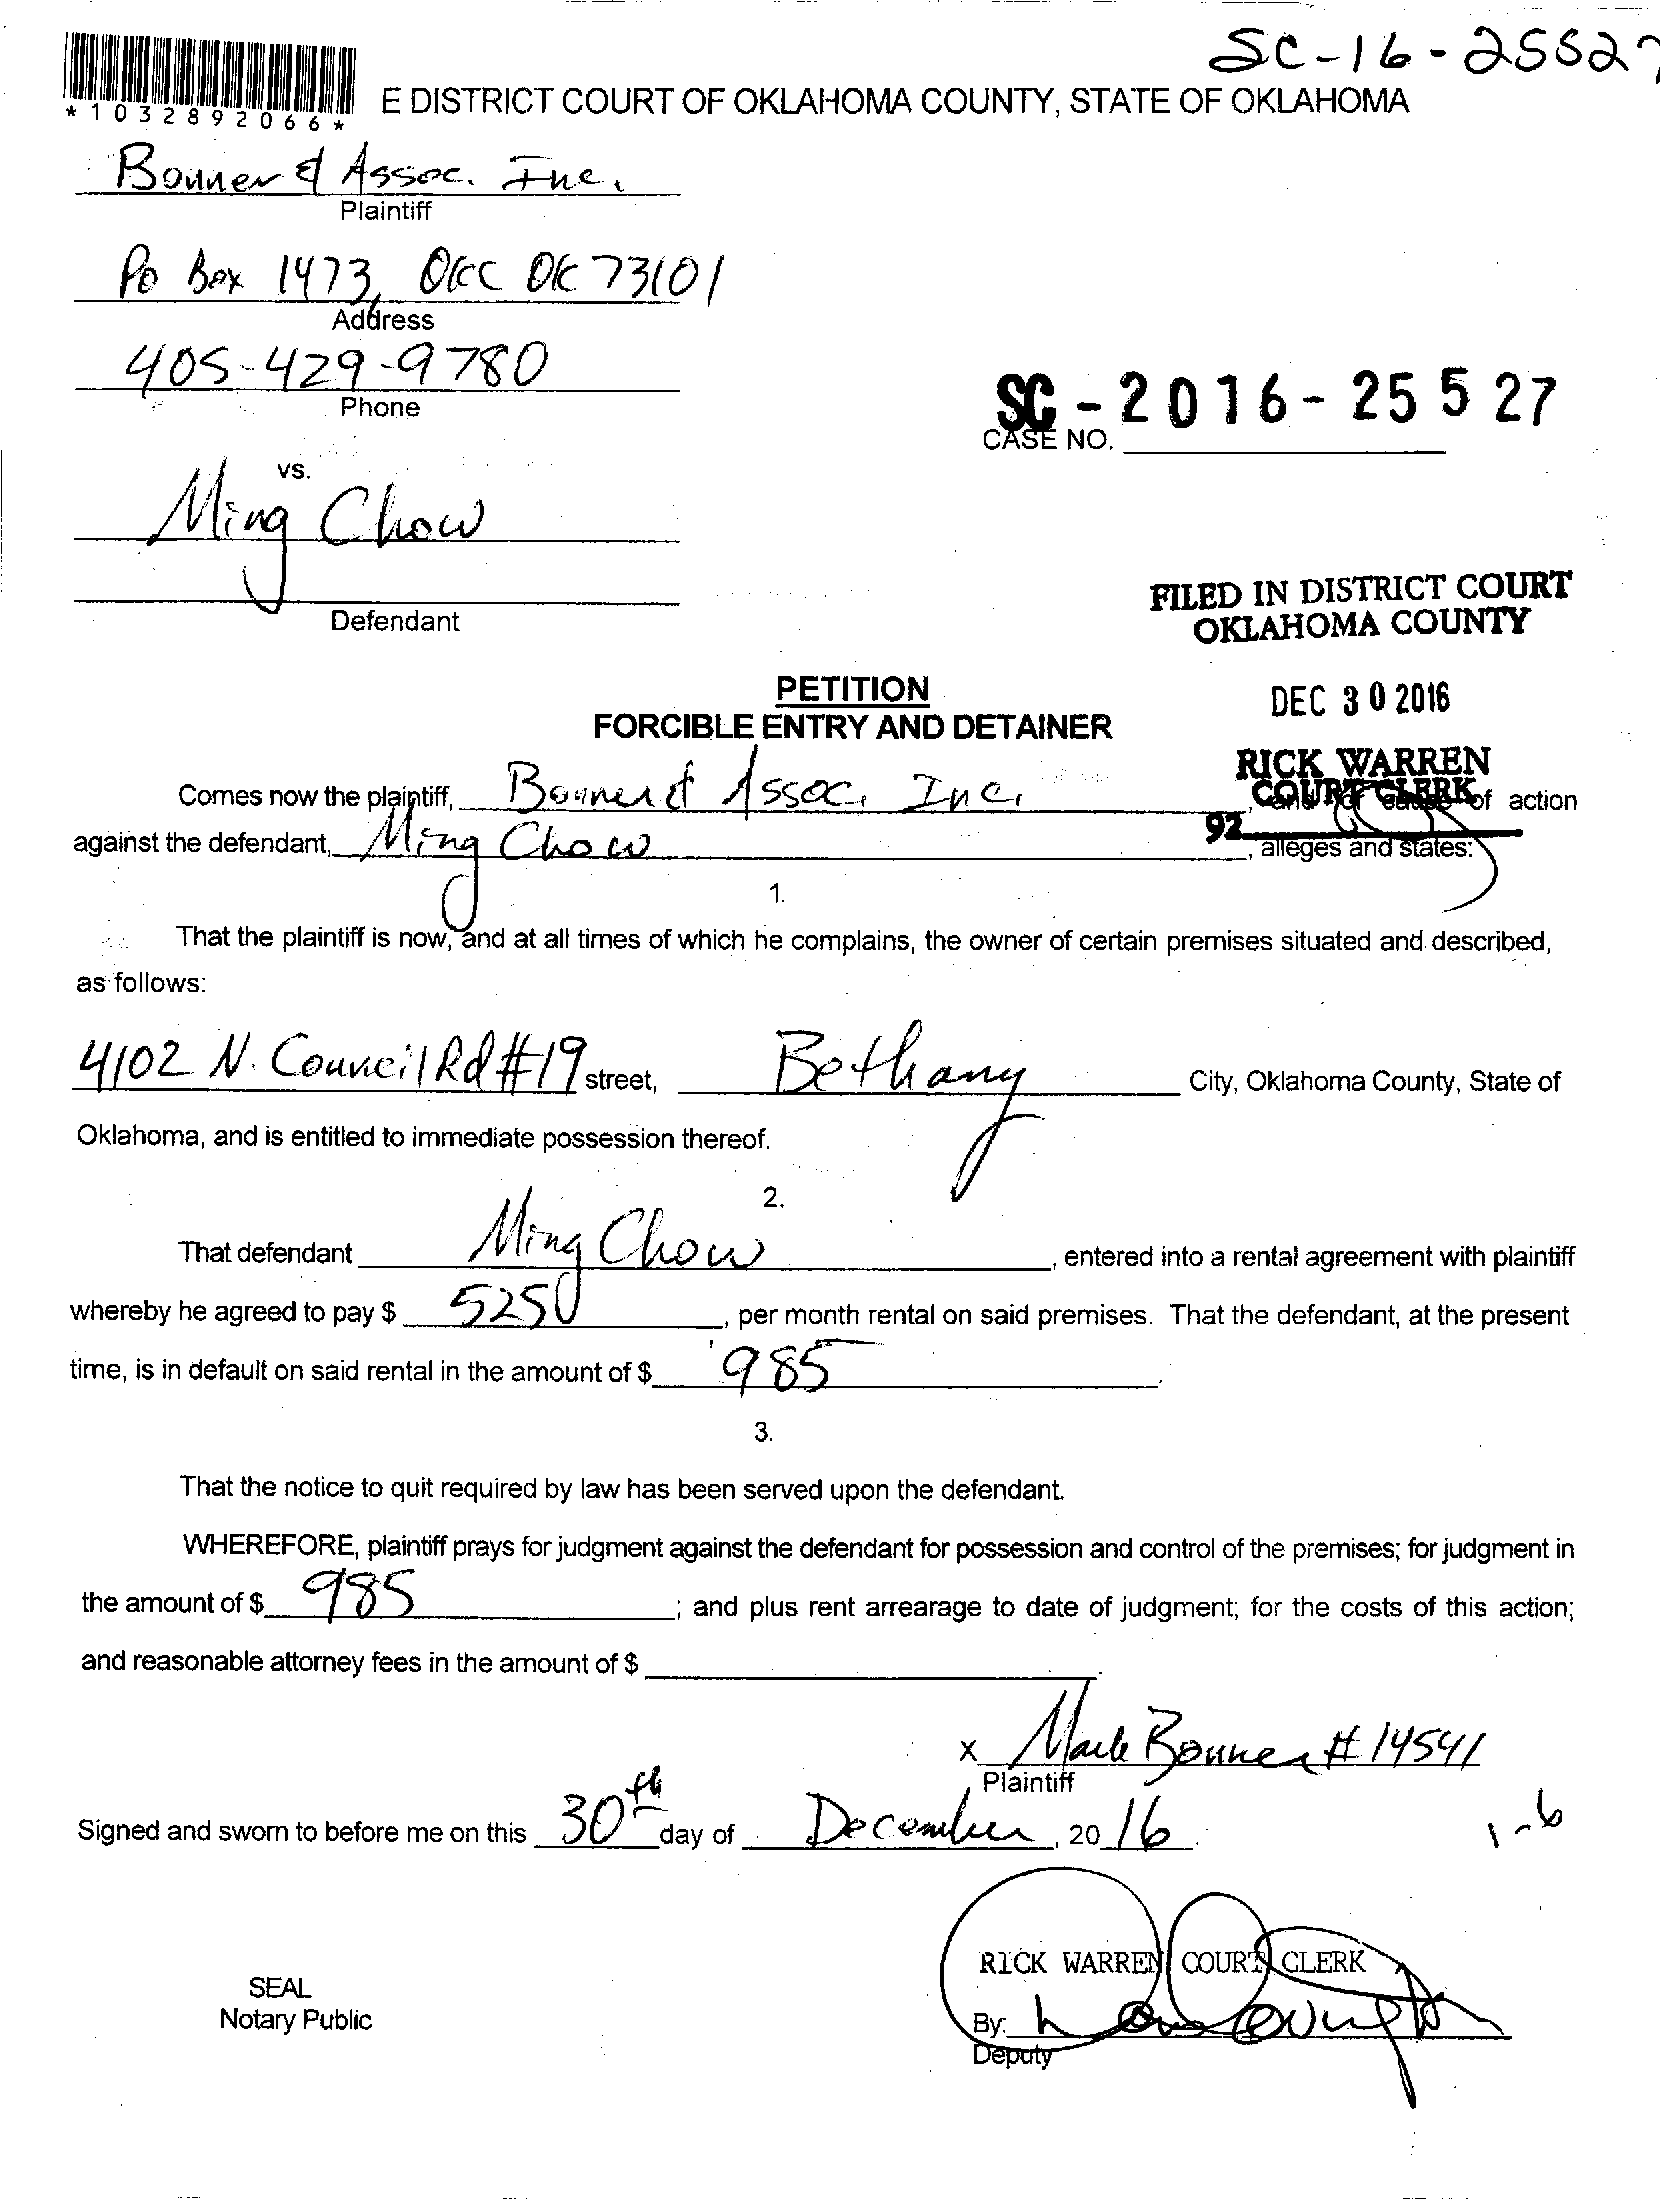 SC-16-25527
*1032892066*
E DISTRICT COURT OF OKLAHOMA COUNTY, STATE OF OKLAHOMA
Bonner & Assoc. Inc.
Plaintiff
Po Box 1473, OKC OK 73101
Address
405-429-9780
Phone
SC-2016-25527
CASE NO.
vs.
Ming Chow
Defendant
FILED IN DISTRICT COURT
OKLAHOMA COUNTY
PETITION
FORCIBLE ENTRY AND DETAINER
DEC 30 2016
RICK WARREN
COURT CLERK
Comes now the plaintiff, Bonner & Assoc. Inc. of action
92
against the defendant, Ming Chow, alleges and states:
1.
That the plaintiff is now, and at all times of which he complains, the owner of certain premises situated and described,
as follows:
4102 N. Council Rd #19 street, Bethany City, Oklahoma County, State of
Oklahoma, and is entitled to immediate possession thereof.
2.
That defendant Ming Chow, entered into a rental agreement with plaintiff
whereby he agreed to pay $ 525, per month rental on said premises. That the defendant, at the present
time, is in default on said rental in the amount of $ 985.
3.
That the notice to quit required by law has been served upon the defendant.
WHEREFORE, plaintiff prays for judgment against the defendant for possession and control of the premises; for judgment in
the amount of $ 985; and plus rent arrearage to date of judgment; for the costs of this action;
and reasonable attorney fees in the amount of $ .
x Mark Bonner # 14541
Plaintiff
Signed and sworn to before me on this 30th day of December, 2016.
1-6
RICK WARREN COURT CLERK
SEAL
Notary Public
By:
Deputy